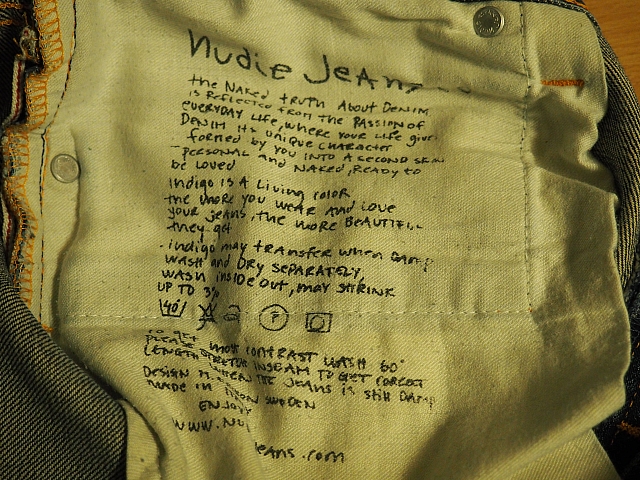 nudie Jeans
the NAKED truth About DENIM
is Reflected from the PASSION OF
EVERYDAY Life, where your life give
DENIM its unique character
formed by you INTO A SECOND SKIN
- PERSONAL and NAKED, READY to
be LOVED
Indigo is A Living color
the more you wear and LOVE
your jeans, the more BEAUTIFUL
they get
- indigo may transfer when DAMP
WASH and DRY SEPARATELY,
WASH INSIDE OUT, MAY SHRINK
UP TO 3%
40°
P
TO GET most contrast WASH 60°
PLEASE
LENGTH STRETCH INSEAM TO GET CORRECT
WHEN THE JEANS is still Damp
DESIGN SWEDEN
MADE IN
ENJOY
WWW.NU
jeans.com